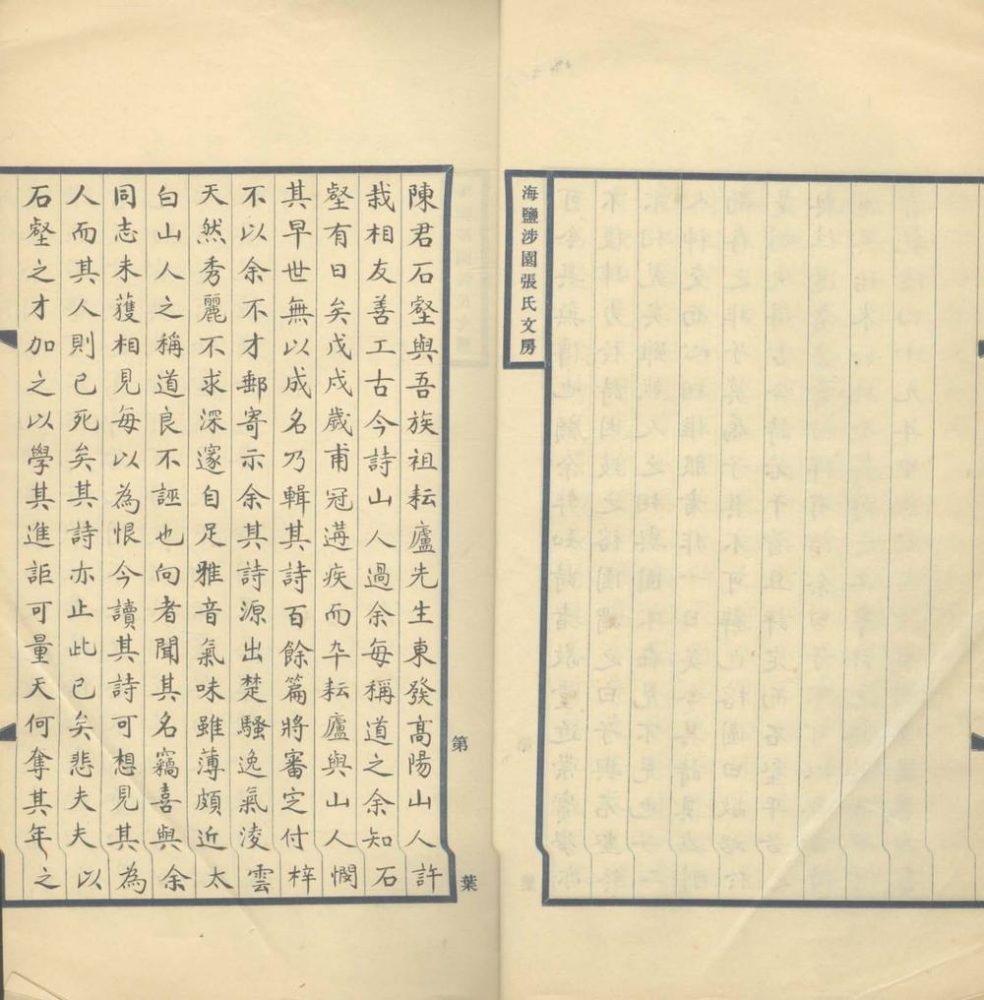 海鹽涉園張氏文房
陳君石壑與吾族祖耘廬先生東發高陽山人許
栽相友善工古今詩山人過余每稱道之余知石
壑有日矣戊戌歲甫冠遘疾而卒耘廬與山人憫
其早世無以成名乃輯其詩百餘篇將審定付梓
不以余不才郵寄示余其詩源出楚騷逸氣凌雲
天然秀麗不求深邃自足雅音氣味雖薄頗近太
白山人之稱道良不誣也向者聞其名竊喜與余
同志未獲相見每以為恨今讀其詩可想見其為
人而其人則已死矣其詩亦止此已矣悲夫夫以
石壑之才加之以學其進詎可量天何奪其年之
第
葉